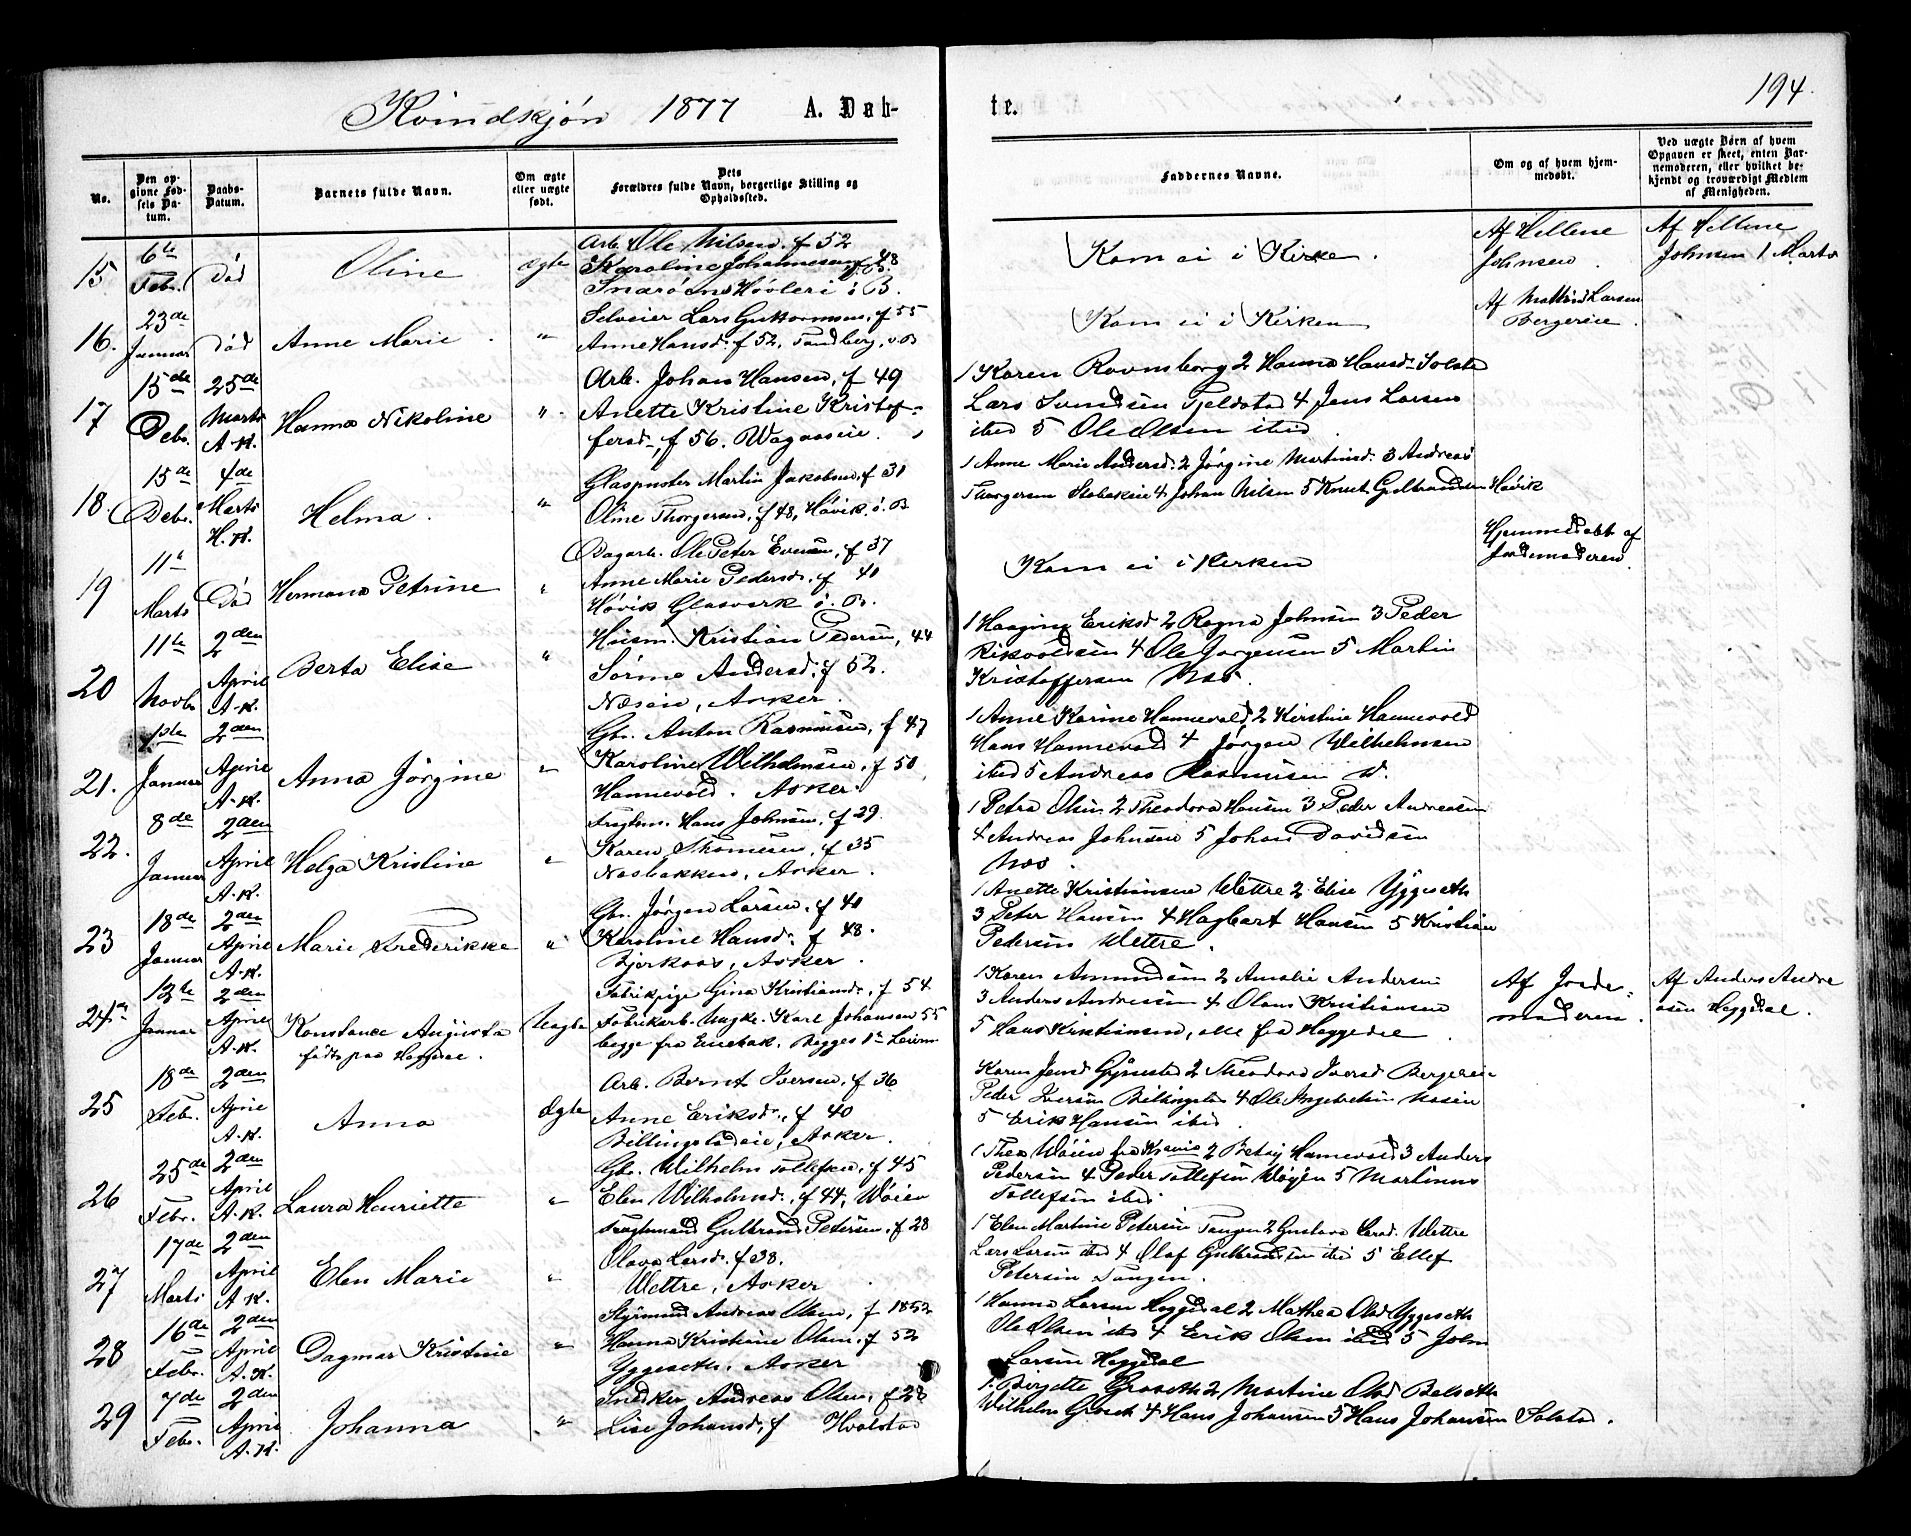 Kvindkjøn 1877 A. Dab-
te.
194.
No.
Den op-
givne Fød-
sels Da-
tum.
Daabs-
Datum.
Barnets fulde Navn.
Om ægte
eller uægte
født.
Dets
Forældres fulde Navn, borgerlige Stilling og
Opholdssted.
Faddernes Navne.
Om og af hvem hjem-
medøbt.
Ved uægte Børn af hvem
Opgaven er skeet, enten Bar-
nemoderen, eller hvilket be-
kjendt og troværdigt Medlem
af Menigheden.
15
6te
Febr.
Død
Oline
ægte
Arb. Ole Nilsen. f 52
Karoline Johannesen f. 48
Snarøens Høvleri i B.
Kom ei i Kirke.
Af Hellene
Johnsen.
Af Hellene
Johnsen 1 Marts
16.
23de
Januar
Død
Anne Marie.
"
Selveier Lars Guttormsen, f 55
Anne Hansd. f 52, Tandberg, i B
Kom ei i Kirken
Af Larsen
Bergereie.
17
15de
Debr.
25de
Marts
A.K.
Hanna Nikoline
"
Arb. Johan Hansen, f 49
Anette Kristine Kristof-
fersd., f 56.
1 Karen Ravnsborg 2 Hanna Hansd.
Lars Svendsen Tjeldstad 4 Jens Larsen
ibed 5 Ole Olsen ibed
18.
15de
Debr.
4de
Marts
H.K.
Helma.
"
Glaspuster Martin Jakobsen, f 31
Oline Thorgersen, f 48, Høvik i B
1 Anne Marie Andersd. 2 Jørgine Martinsd. 3 Andreas
Thorgersen Stabekeie 4 Johan Nilsen 5 Knut Gulbrandsen Høvik
19
11te
Marts
Død
Hermana Petrine
"
Dagarb. Ole Peter Evensen, f 37
Anne Marie Pedersd. f 40
Høvik Glasværk i B.
Kom ei i Kirken
Hjemmedøbt af
Jordemoderen.
20
11te
Novbr.
2den
April
A.K.
Berta Elise
"
Husm. Kristian Pedersen, 44
Sørine Andersd. f 52.
Næseie, Asker.
1 Haagine Eriksd 2 Ragna Johnsen 3 Peder
Rikvoldsen 4 Ole Jørgensen 5 Martin
Kristoffersen Næs.
21.
1ste
Januar
2den
April
A.K.
Anna Jørgine
"
Gbr. Anton Rasmusen, f 47
Karoline Wilhelmsen, f 50,
Hannevold. Asker.
1 Anne Karine Hannevold, 2 Kirstine Hannevold
Hans Hannevold 4 Jørgen Wilhelmsen
ibed 5 Andreas Rasmusen
22.
8de
Januar
2den
April
A.K.
Helga Kristine
"
Fragtm. Hans Johnsen, f 29
Karen Thomesen, f 35
Næsbakken, Asker.
1 Petra Olsen 2 Theodora Hansen 3 Peder Andreasen
4 Andreas Johnsen 5 Johan Davidsen
Næs.
23
18de
Januar
2den
April
A.K.
Marie Frederikke
"
Gbr. Jørgen Larsen, f 40
Karoline Hansd. f 48.
Bjerkaas, Asker.
1 Anette Kristiansen Wettre 2 Elise Yggeseth
3 Peter Hansen 4 Hagbart Hansen 5 Kristian
Pedersen Wettre.
24
12te
Januar
2den
April
A.K.
Konstance Augusta
født paa Heggedal.
Uægte
Fabrikpige Gina Kristiansd., f 54
Fabrikarb. Ungk. Karl Johansen 55
begge fra Enebak. Begges 1ste Leierm.
1 Karen Amundsen 2 Amalie Andersen
3 Anders Andresen 4 Olaus Kristiansen
5 Hans Kristiansen, alle fra Heggedal.
Af Jorde-
moderen.
Af Anders Andre
asen Heggedal.
25
18de
Febr.
2den
April
A.K.
Anna
Ægte
Arb. Bernt Iversen, f 36
Anne Eriksd., f 40
Billingstadeie, Asker.
Karen Jensd 2 Theodora Iversd Bergereie
Peder Iversen Billingstad 4 Ole Ingebretsen
5 Erik Hansen ibed.
26
25de
Febr.
2den
April
A.K.
Laura Henriette
"
Gbr. Wilhelm Tollefsen, f 45
Elen Wilhelmsd., f 44, Wøien
1 Thea Wøien 2 Betsy Hannevold 3 Anders
Pedersen 4 Peder Tollefsen Wøyen 5 Martinus
Tollefsen ibed.
27
17de
Marts
2den
April
A.K.
Elen Marie
"
Fragtmand Gulbrand Petersen, f 28
Olava Larsd. f 38.
Wettre, Asker
1 Elen Martine Petersen Tangen 2 Gustava Larsd. Wettre
Lars Larsen ibed 4 Olaf Gulbrandsen ibed 5 Ellef
Petersen Tangen.
28
16de
Febr.
2den
April
A.K.
Dagmar Kristine
"
Styrmand Andreas Olsen, f 1852
Hanna Kristine Olsen, f 52
Yggeseth, Asker
1 Hanna Larsen Heggedal 2 Mathea Olsd Yggeseth
Ole Olsen ibed 4 Erik Olsen ibed 5 John
Larsen Heggedal
29
7de
Febr.
2den
April
A.K.
Johanna
"
Snedker Andreas Olsen, f 28
Lise Johansd., f Hvalstad
1. Birgitte Groseth 2 Martine Olsd Belseth
Wilhelm Groseth 4 Hans Johansen 5 Hans Johansen Solstad.